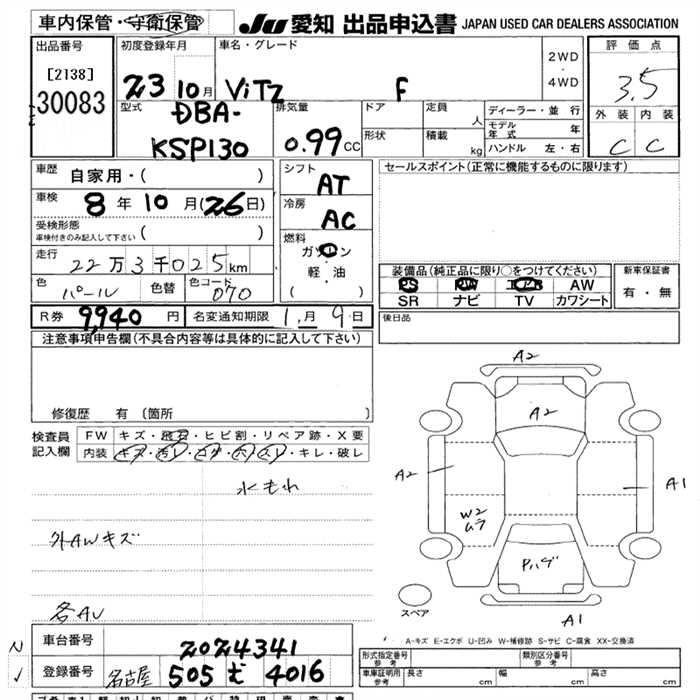 車内保管・守衛保管
JU 愛知 出品申込書 JAPAN USED CAR DEALERS ASSOCIATION
出品番号
[2138]
30083
初度登録年月
23 10月
車名・グレード
VITZ F
2WD
・
4WD
評価点
3.5
外装 内装
C C
型式
DBA-
KSP130
排気量
0.99 CC
ドア
定員
人
形状
積載
kg
ディーラー・並行
モデル年式 年
ハンドル 左・右
車歴
自家用・( )
車検
8年10月(26日)
受検形態
車検付きのみ記入して下さい ( )
走行
22万3千025km
色
パール
色替
色コード
070
シフト
AT
冷房
AC
燃料
ガソリン
軽・油
( )
セールスポイント(正常に機能するものに限ります)
装備品(純正品に限り○をつけてください)
PS PW エアB AW
SR ナビ TV カワシート
新車保証書
有・無
後日品
R券 9,940円
名変通知期限 1月9日
注意事項申告欄(不具合内容等は具体的に記入して下さい)
修復歴 有 〔箇所 〕
検査員
記入欄
FW キズ・飛石・ヒビ割・リペア跡・X要
内装 キズ・汚レ・コゲ・穴・スレ・キレ・破レ
水もれ
外AWキズ
各AU
A2
A2
A2
A1
W2
ムラ
Pハゲ
A1
スペア
A-キズ E-エクボ U-凹み W-補修跡 S-サビ C-腐食 XX-交換済
N
車台番号
2024341
登録番号
名古屋 505 4016
形式指定番号
参考
類別区分番号
参考
車庫証明用
参考
長さ cm
幅 cm
高さ cm